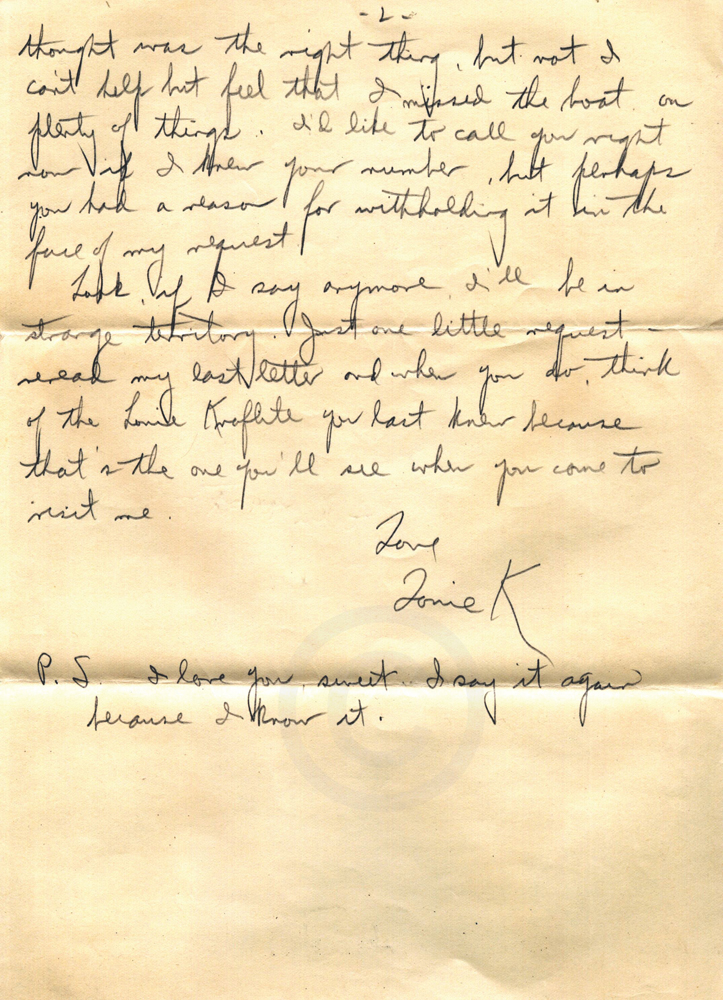 -2-
thought was the right thing, but not I
can't help but feel that I missed the boat on
plenty of things. I'd like to call you right
now if I knew your number, but perhaps
you had a reason for withholding it in the
face of my request
Look, if I say anymore, I'll be in
strange territory. Just one little request -
reread my last letter and when you do, think
of the Lonie you last knew because
that's the one you'll see when you come to
visit me.
Love
Lonie K
P.S. I love you, sweet. I say it again
because I know it.